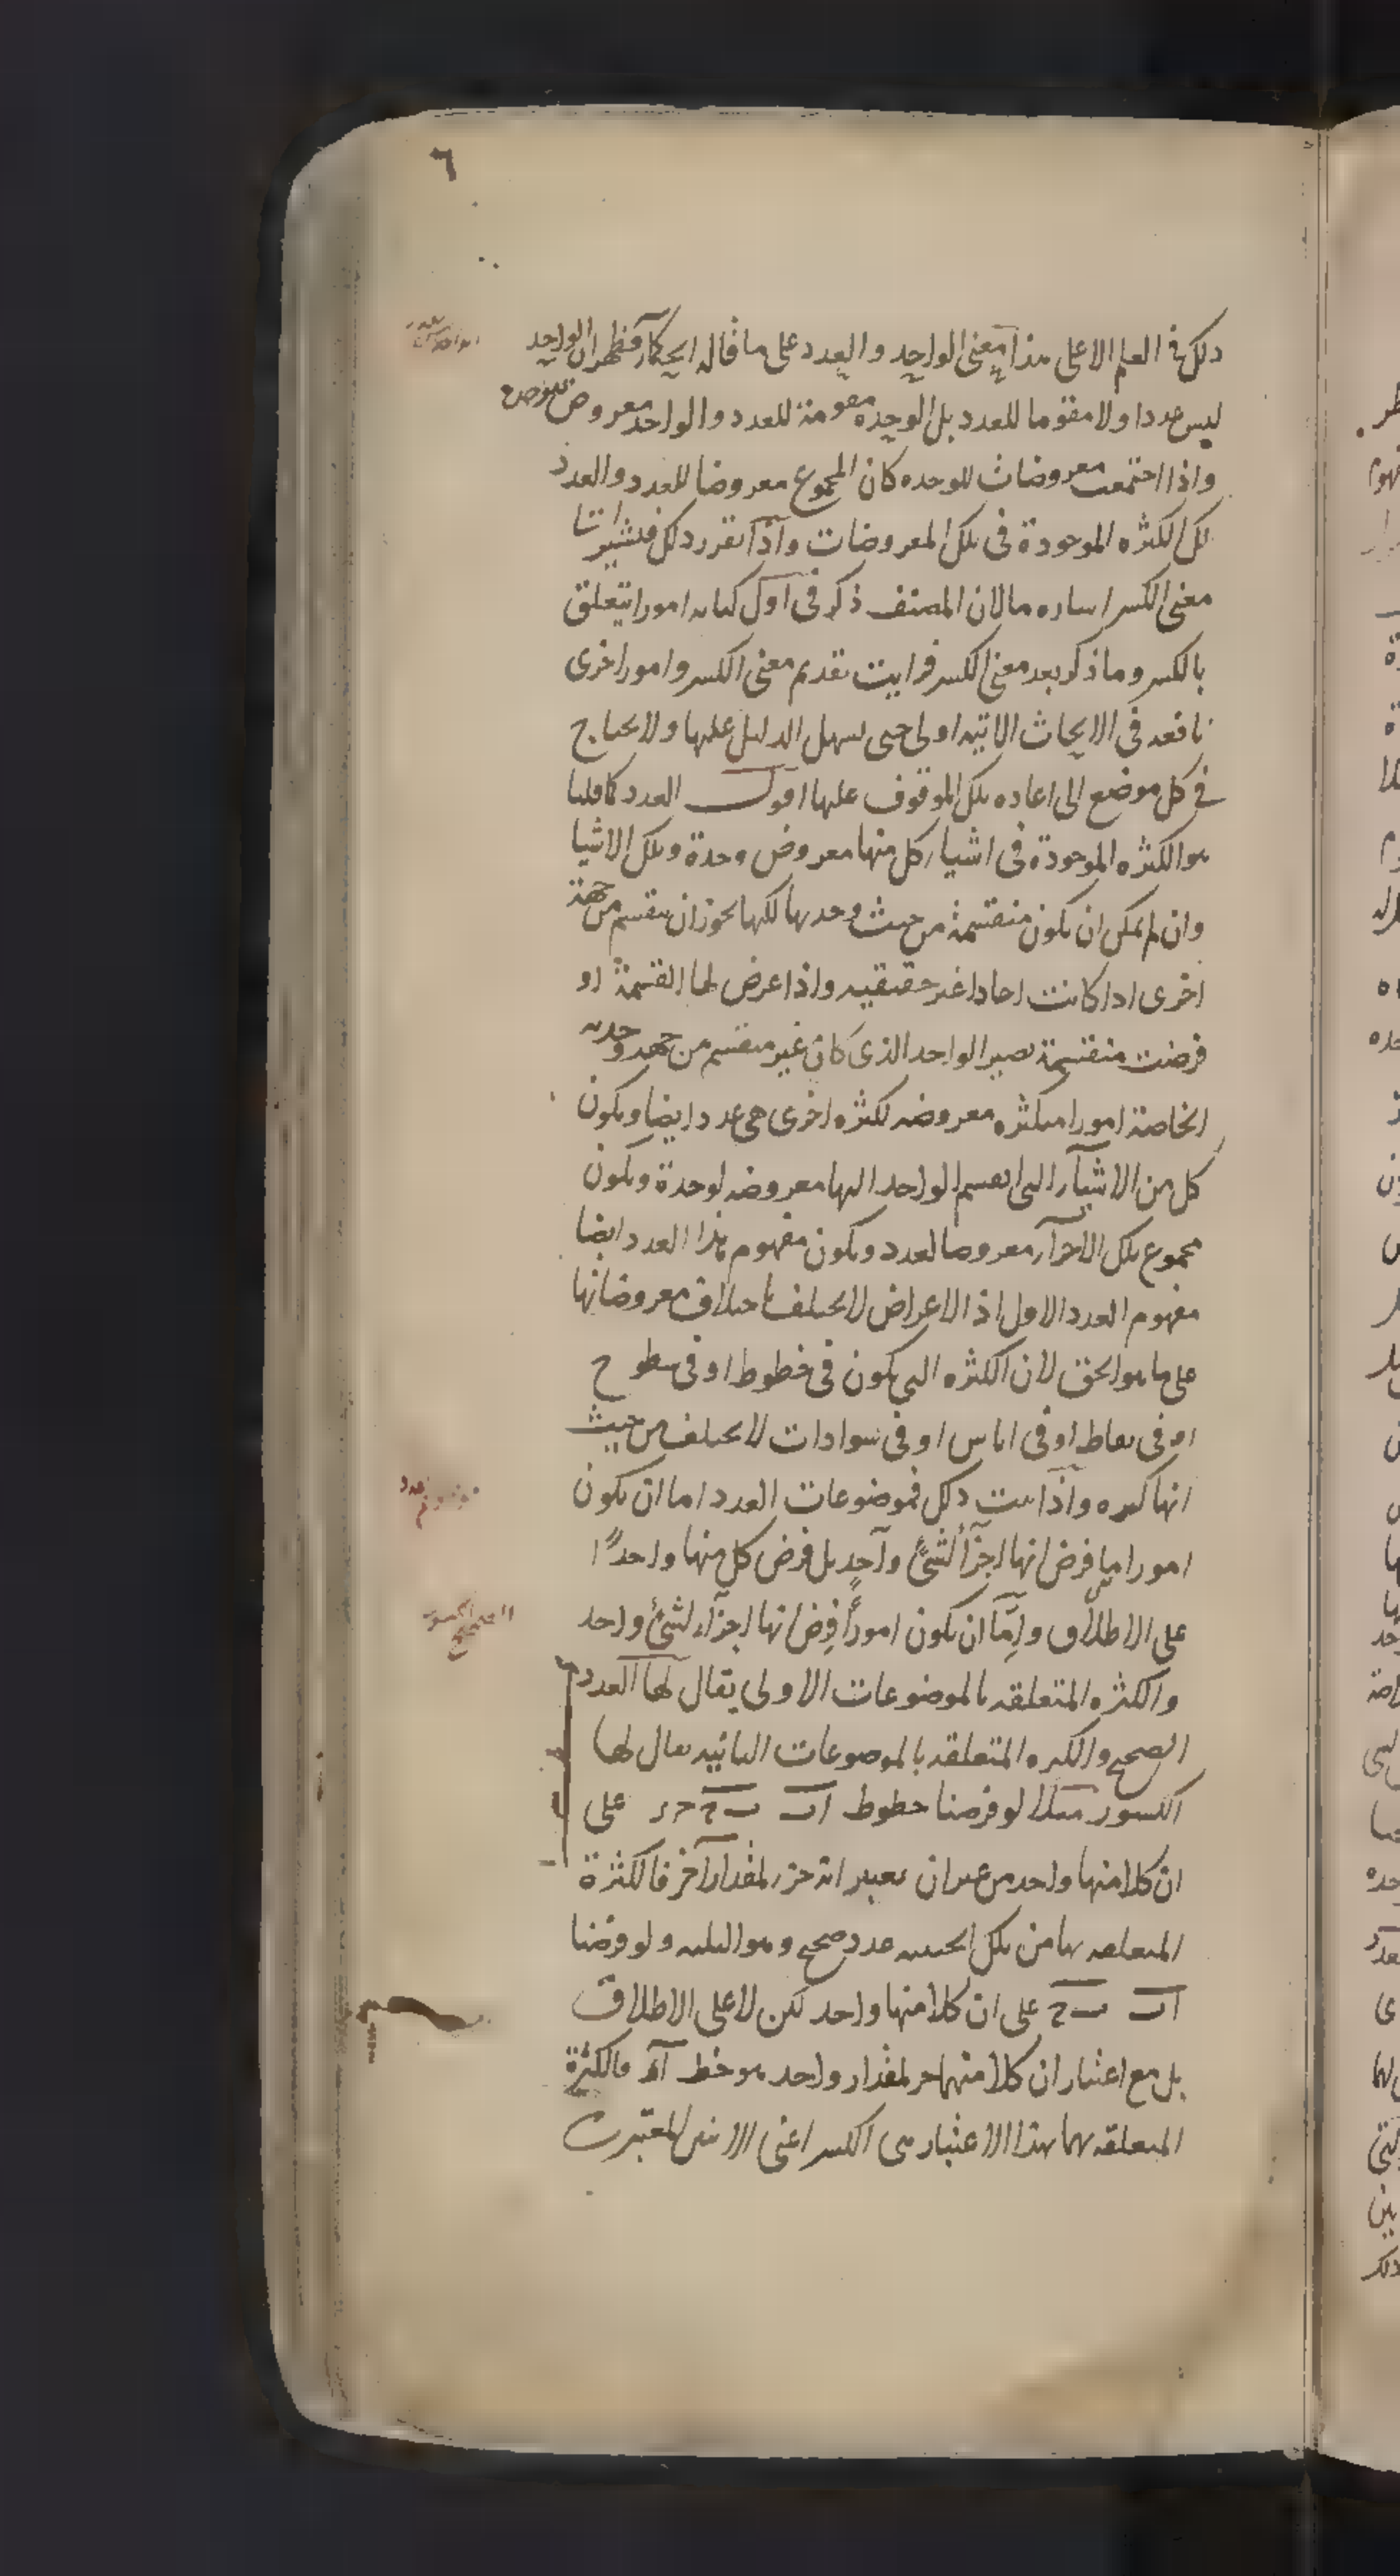 ٦
ذلك فى العلم الاعلى هذا معنى الواحد والعدد على ما قاله الحكمآء فظهر ان الواحد
ليس عددا ولا مقوما للعدد بل الوحده مقومة للعدد والواحد معروض
واذا اجتمعت معروضات للوحده كان المجموع معروضا للعدد والعدد
تلك الكثره الموجودة فى تلك المعروضات واذا تقرر ذلك فنشير
معنى الكسر اشاره ما لان المصنف ذكر فى اول كتابه امورا يتعلق
بالكسر وما ذكر بعد معنى الكسر فرايت تقديم معنى الكسر وامور اخرى
نافعه فى الابحاث الاتيه اولى حتى يسهل الدليل عليها ولا يحتاج
فى كل موضع الى اعاده تلك الموقوف عليها اقول العدد كما قلنا
هو الكثره الموجودة فى اشيآء كل منها معروض وحدة وتلك الاشيا
وان لم يمكن ان يكون منقسمة من حيث وحدتها لكنها يجوز ان ينقسم من جهة
اخرى اذا كانت احادا غير حقيقيه واذا عرض لها القسمة او
فرضت منقسمة يصير الواحد الذى كان غير منقسم من جهه وحدته
الخاصة امورا متكثره معروضه لكثره اخرى هى عدد ايضا ويكون
كل من الاشيآء التى انقسم الواحد اليها معروضه لوحدة ويكون
مجموع تلك الاجزآء معروضا لعدد ويكون مفهوم هذا العدد ايضا
مفهوم العدد الاول اذ الاعراض لا يختلف باختلاف معروضاتها
على ما هو الحق لان الكثره التى يكون فى خطوط او فى سطوح
او فى نقاط او فى اناس او فى سوادات لا يختلف من حيث
انها كثيره واذا ثبت ذلك فموضوعات العدد اما ان يكون
امورا ما فرض انها اجزآء لشئ واحد بل فرض كل منها واحدًا
على الاطلاق وامّا ان يكون امورًا فرض انها اجزآء لشئ واحد
والكثره المتعلقه بالموضوعات الاولى يقال لها العدد
الصحيح والكثره المتعلقه بالموضوعات الثانيه يقال لها
الكسور مثلا لو فرضنا خطوط اب ب ج ج د على
ان كلا منها واحد من غير ان يعتبر انه جزء لمقدار آخر فالكثرة
المتعلقه بها من تلك الحيثيه عدد صحيح وهو الثلثه ولو فرضنا
اب ب ج على ان كلا منها واحد لكن لا على الاطلاق
بل مع اعتبار ان كلا منهما جزء لمقدار واحد هو خط فالكثرة
المتعلقه بهما بهذا الاعتبار هى الكسر اعنى الاثنين المعتبرة